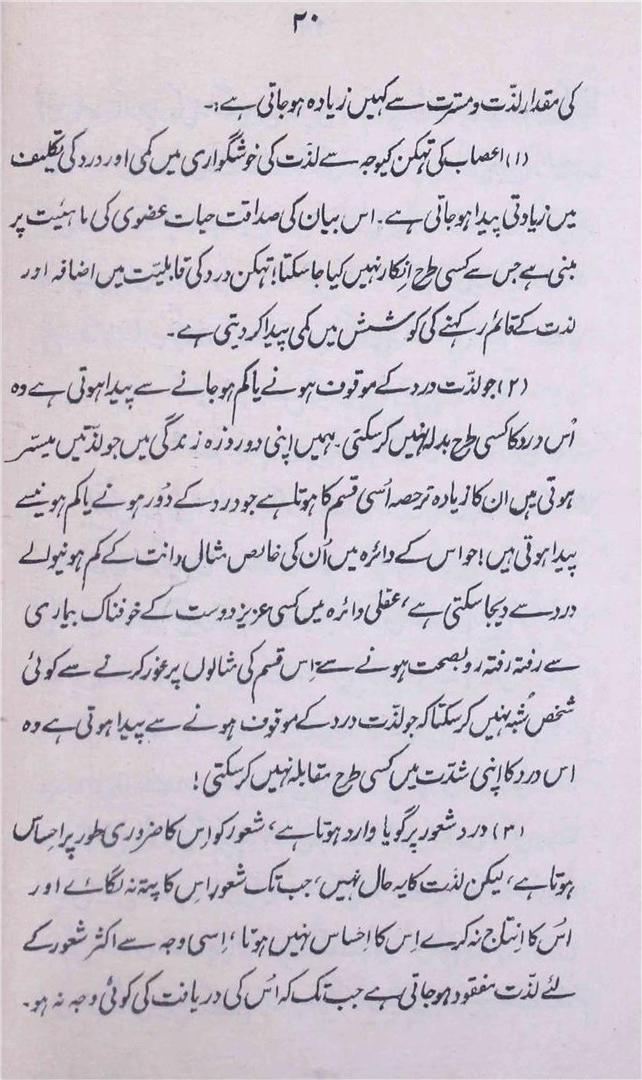 ۲۰
کی مقدار لذّت و مسرّت سے کہیں زیادہ ہوجاتی ہے :۔
(۱) اعصاب کی تہکن کیوجہ سے لذّت کی خوشگواری میں کمی اور درد کی تکلیف
میں زیادتی پیدا ہوجاتی ہے۔ اس بیان کی صداقت حیات عضوی کی ماہیّت پر
مبنی ہے جس سے کسی طرح اِنکار نہیں کیا جاسکتا! تہکن درد کی قابلیّت میں اضافہ اور
لذت کے قائم رکہنے کی کوشش میں کمی پیدا کردیتی ہے۔
(۲) جو لذّت درد کے موقوف ہونے یا کم ہوجانے سے پیدا ہوتی ہے وہ
اُس درد کا کسی طرح بدلہ نہیں کرسکتی۔ ہمیں اپنی دو روزہ زندگی میں جو لذّتیں میسّر
ہوتی ہیں ان کا زیادہ تر حصہ اُسی قسم کا ہوتا ہے جو درد کے دُور ہونے یا کم ہونیسے
پیدا ہوتی ہیں! حواس کے دائرہ میں اُن کی خالص مثال دانت کے کم ہونیوالے
درد سے دیجاسکتی ہے، عقلی دائرہ میں کسی عزیز دوست کے خوفناک بیماری
سے رفتہ رفتہ روبصحت ہونے سے۔ اِس قسم کی مثالوں پر غور کرنے سے کوئی
شخص شُبہ نہیں کرسکتا کہ جو لذّت درد کے موقوف ہونے سے پیدا ہوتی ہے وہ
اس درد کا اپنی شدّت میں کسی طرح مقابلہ نہیں کرسکتی!
(۳) درد شعور پر گویا وارد ہوتا ہے، شعور کو اِس کا ضروری طور پر احساس
ہوتا ہے، لیکن لذّت کا یہ حال نہیں، جب تک شعور اِس کا پتہ نہ لگائے اور
اُس کا اِنتاج نہ کرے اِس کا احساس نہیں ہوتا، اِسی وجہ سے اکثر شعور کے
لئے لذّت مفقود ہوجاتی ہے جب تک کہ اُس کی دریافت کی کوئی وجہ نہ ہو۔